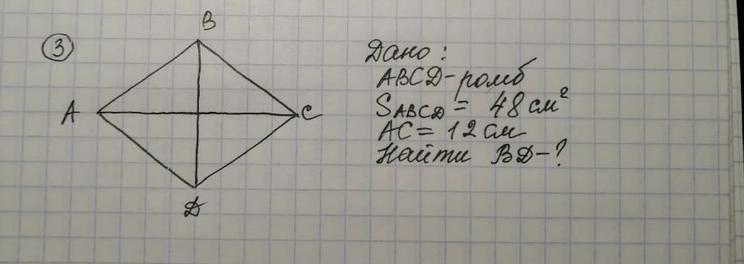 3
B
A
C
D
Дано:
ABCD-ромб
SABCD = 48 см²
AC = 12 см
Найти BD-?